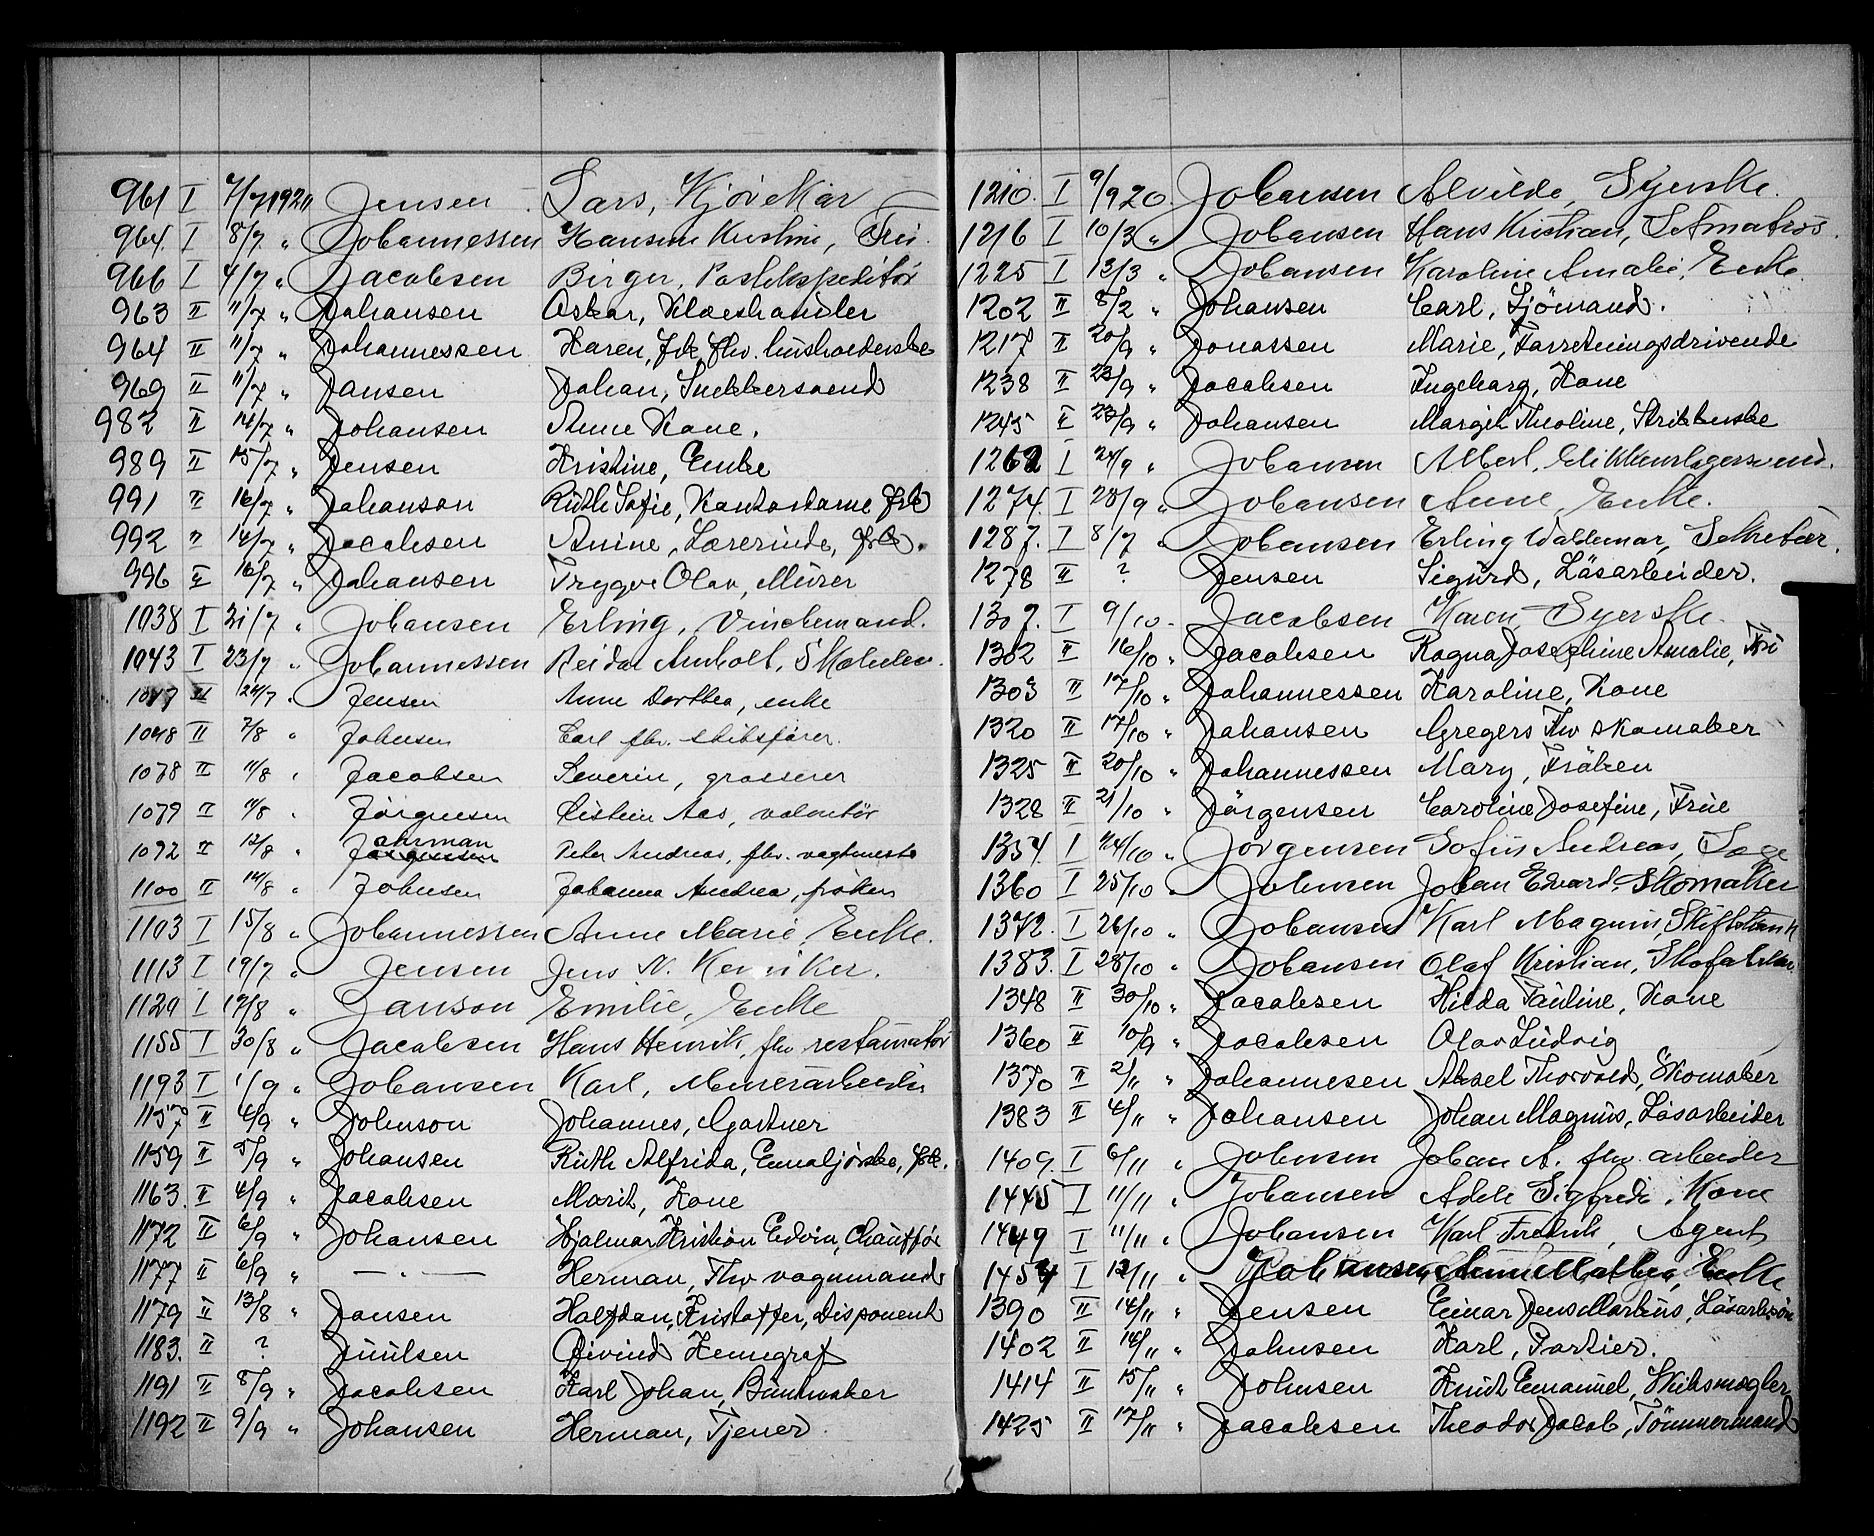 961 I 7/7 1920 Jensen Lars, Kjøreskar
964. I 8/7 „ Johannessen Hansine Kristine, Frü.
966 I 4/7 „ Jacobsen Birger, Postekspeditør
963 II 11/7 „ Johansen Oskar, Klæshandler
964 II 11/7 „ Johannessen Karen, frk. fhv. husholderske
969 II 11/7 „ Jansen Johan, Snekkersvend
982 II 14/7 „ Johansen Anne Kone.
989 II 15/7 „ Jensen Kristine, Enke
991 II 16/7 „ Johanson Rüth Sofie, Kontordame frk
992 " 14/7 „ Jacobsen Anine, Lærerinde, frk.
996 II 16/7 „ Johansen Trygve Olav, Mürer
1038 I 21/7 „ Johansen Erling, Vinchemand.
1043 I 23/7 „ Johannessen Reidar Anholt, Skoleelev.
1047 II 24/7 „ Jensen Anne Dorthea, enke
1048 II 7/8 „ Johnsen Carl fhv. skibsfører.
1078 II 11/8 „ Jacobsen Severin, grosserer
1079 II 11/8 „ Jørgensen Eistein Aas, volontør
1092 II 12/8 „ Jahrman Peter Andreas, fhv. vagtmester
1100 II 14/8 „ Johnsen Johanna Andrea, frøken
1103 I 15/8 „ Johannessen Anne Marie, Enke.
1113 I 19/7 „ Jensen Jens N. Kemiker.
1129 I 17/8 „ Janson Emilie, Enke
1155 I 30/8 „ Jacobsen Hans Henrik, fhv restauratør
1193 I 1/9 „ Johansen Karl, Murerarbeider
1157 II 4/9 „ Johnson Johannes, Gartner
1159 II 5/9 „ Johansen Rüth Alfrida, Emaljørske, frk.
1163. II 4/9 „ Jacobsen Marit, Kone
1172 II 6/9 „ Johansen Hjalmar Kristian Edvin, Chauffør
1177 II 6/9 „ — „ — Herman, Fhv vognmand
1179 II 13/8 „ Jansen Halfdan, Kristoffer, Disponent
1183. II ? Juulsen Øivind Hennegraf
1191 II 8/9 „ Jacobsen Karl Johan, Büntmaker
1192 II 9/9 „ Johansen Herman, Tjener.
1210. I 9/9 20. Johansen Alvilde, Syerske.
1216 I 10/3 „ Johansen Hans Kristian, Letmatros.
1225 I 12/3 „ Johansen Karoline Amalie, Enke
1202 II 8/2 „ Johansen Carl, Sjömand.
1217 II 20/9 „ Jonassen Marie, Forretningsdrivende
1238 II 23/9 „ Jacobsen Ingeborg, Kone
1245 II 23/9 „ Johansen Margit Theoline, Strikkerske
1262 I 24/9 „ Johansen Albert, Blikkenslagersvend.
1274. I 28/9 „ Johansen Anne, Enke.
1287. I 8/7 „ Johansen Erling Waldemar, Sekretær.
1278 II ? Jensen Sigürd, Läsarbeider.
1307. I 9/10 „ Jacobsen Karen, Syerske.
1302 II 16/10 „ Jacobsen Ragna Josephine Amalie, Frü
1303 II 17/10 „ Johannessen Karoline, Kone
1320 II 17/10 „ Johansen Gregers Fhv skomaker
1325 II 20/10 „ Johannessen Mary, Fröken
1328 II 21/10 „ Jörgensen Caroline Josefine, Früe
1354. I 24/10 „ Jörgensen Sofus Andreas,
1360 I 25/10 „ Johnsen Johan Edvard, Skomaker
1372. I I 26/10 „ Johansen Karl Magnus,
1383. I 28/10 „ Johansen Olaf Kristian,
1348 II 30/10 „ Jacobsen Hilda Pauline, Kone
1360 II 10/9 „ Jacobsen Olav Ludvig
1370 II 2/11 „ Johannesen Aksel Thorvald, Skomaker
1383 II 4/11 „ Johansen Johan Magnus, Läsarbeider
1409. I 6/11 „ Johnsen Johan A. fhv. arbeider
1445 I 11/11 „ Johansen Adele Sigfride, Kone
1449 I 11/11 „ Johansen Karl Fredrik, Agent
1454 I 12/11 „ Johannesen Anne Mathea, Enke
1390 II 14/11 „ Jensen Einar Jens Markus,
1402 II 14/11 „ Johnsen Karl, Portier.
1414 II 15/11 „ Johnsen Knut Emanuel, Skibsmægler
1425 II 17/11 „ Jacobsen Theodor Jacob, Tömmermand